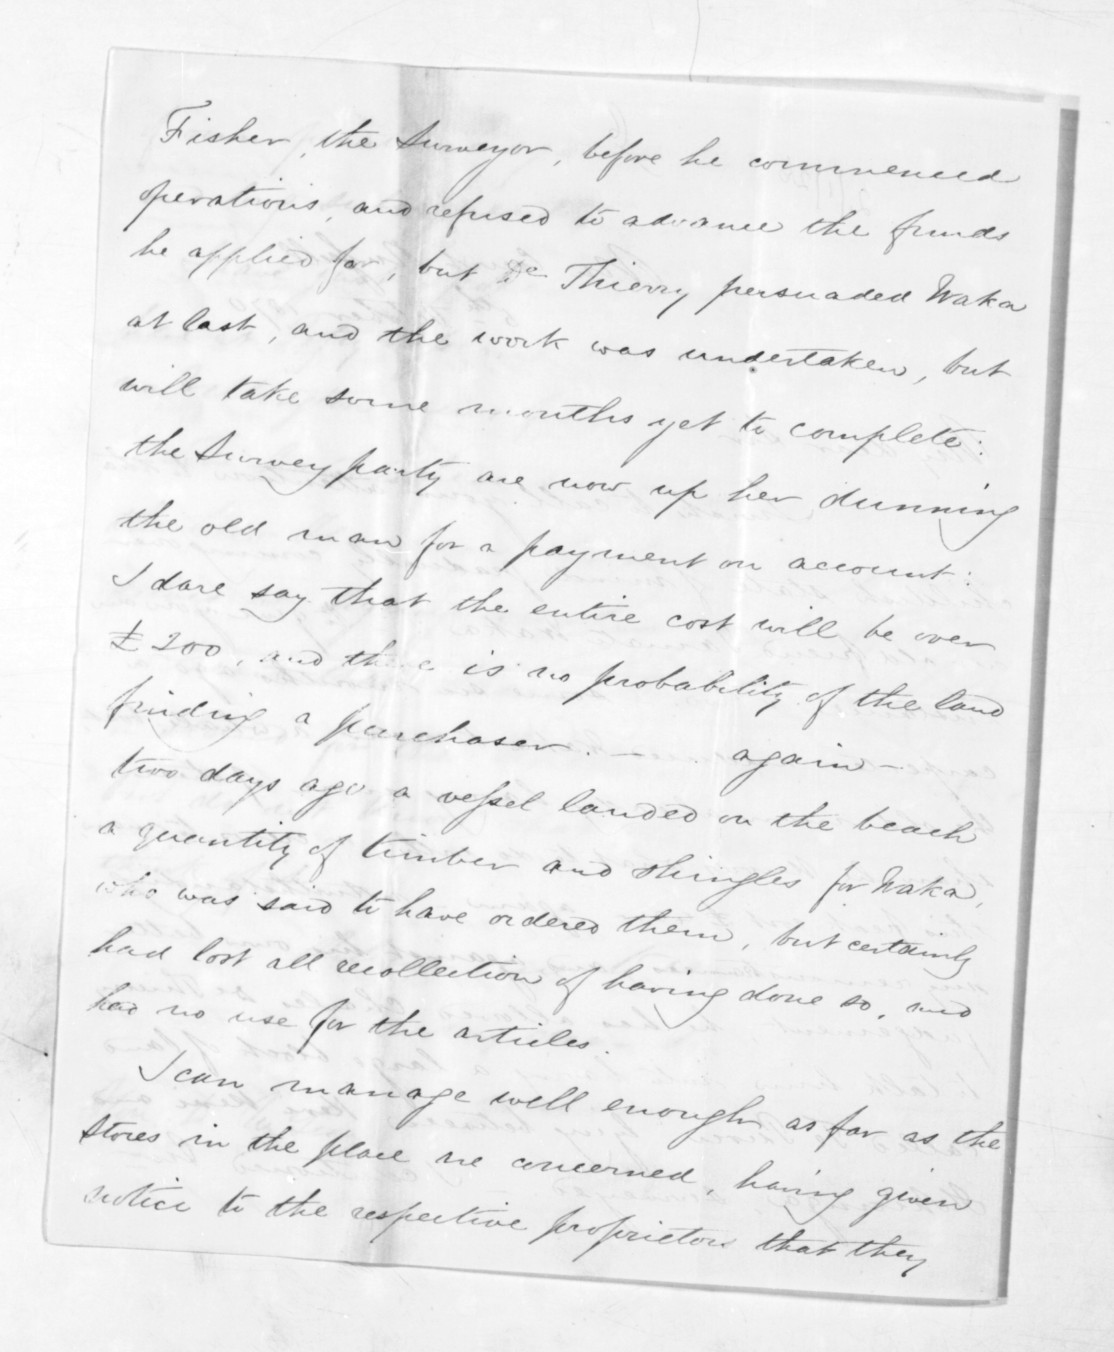 Fisher, the Surveyor, before he commenced
operations, and refused to advance the funds
he applied for, but De Thierry persuaded Waka
at last, and the work was undertaken, but
will take some months yet to complete:
the Survey party are now up her dunning
the old man for a payment on account:
I dare say that the entire cost will be over
£200, and there is no probability of the land
finding a purchaser. — again —
two days ago a vessel landed on the beach
a quantity of timber and shingles for Waka,
who was said to have ordered them, but certainly
had lost all recollection of having done so, and
had no use for the articles.
I can manage well enough as far as the
Stores in the place are concerned, having given
notice to the respective proprietors that they